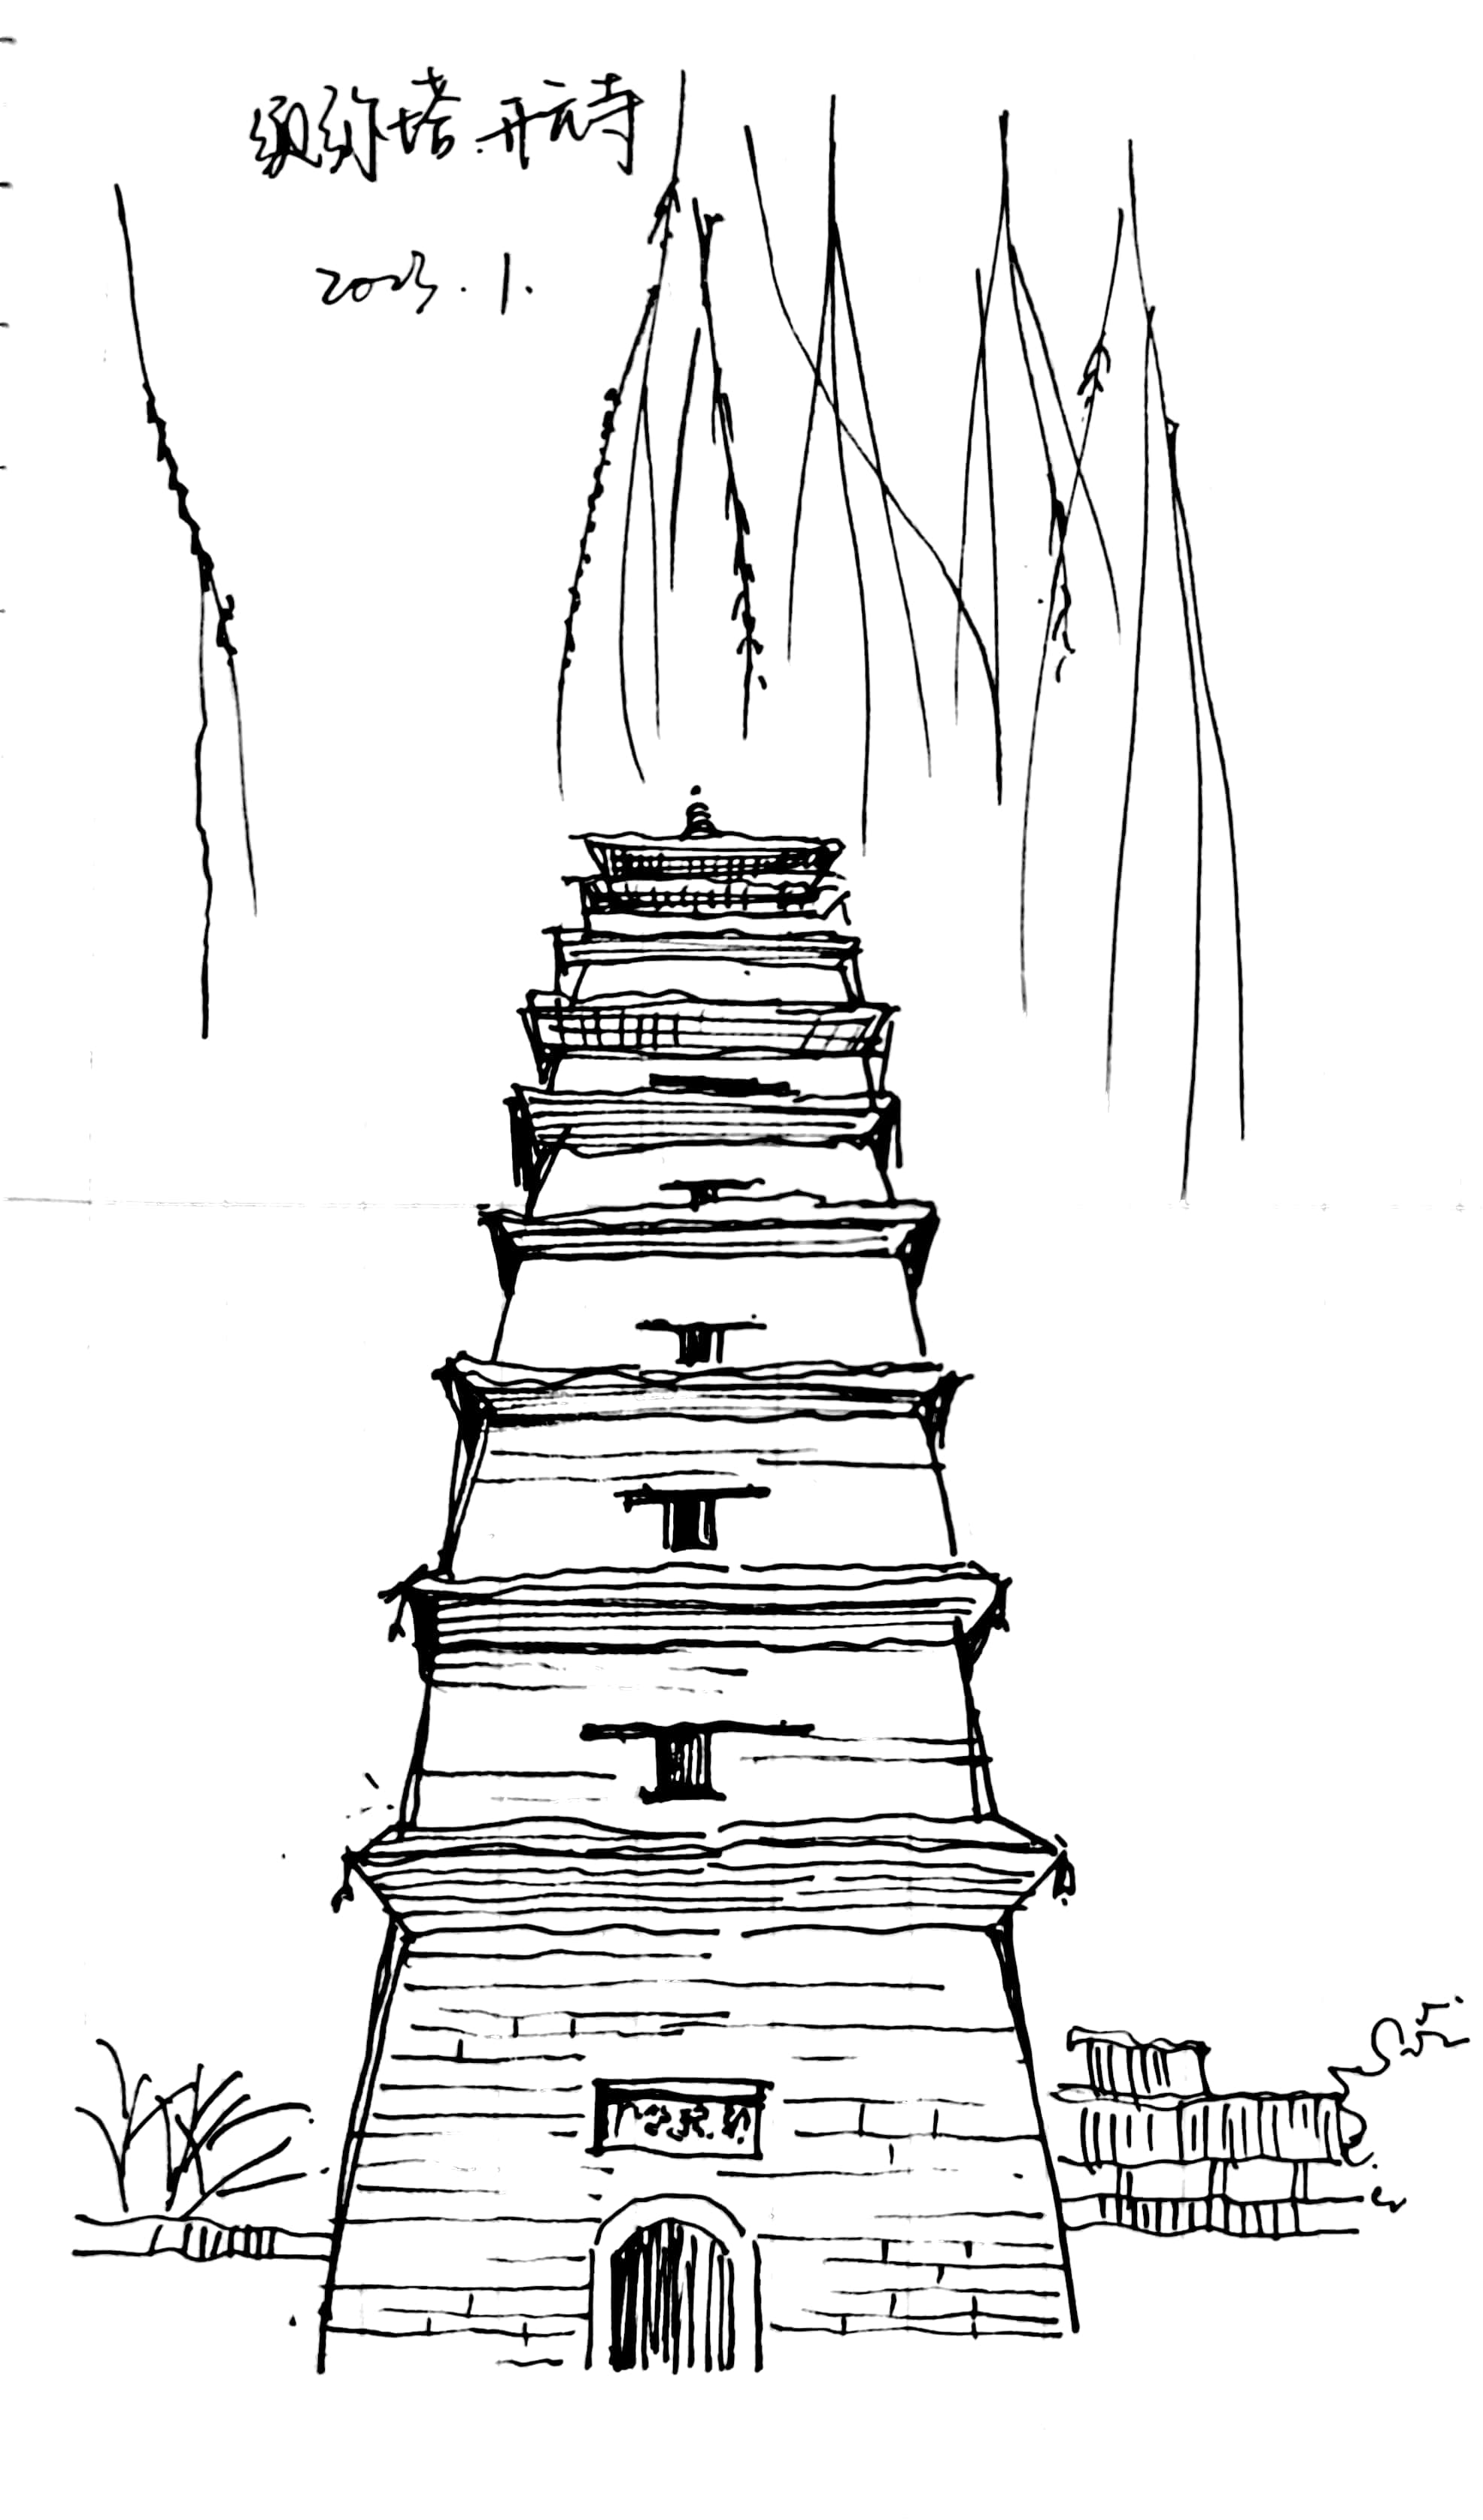 须弥塔.开元寺
2023.1.